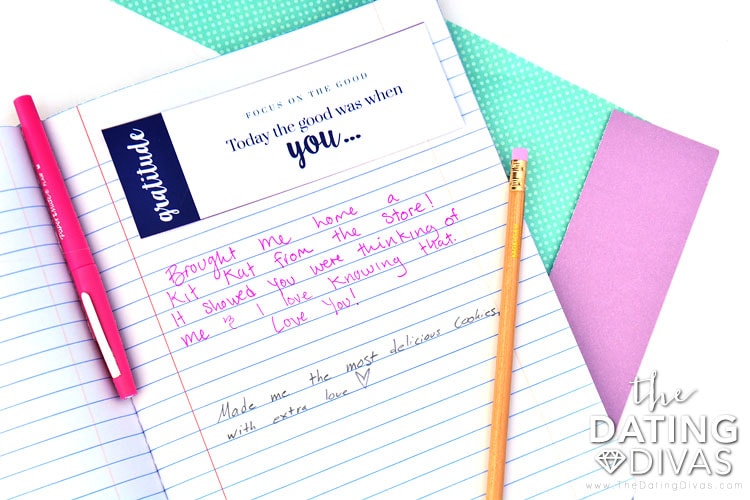 FOCUS ON THE GOOD
gratitude
Today the good was when
you...
Brought me home a
Kit Kat from the store!
It showed you were thinking of
me & I love knowing that.
Love You!
Made me the most delicious cookies,
with extra love ♡
the
DATING
DIVAS
www.TheDatingDivas.com